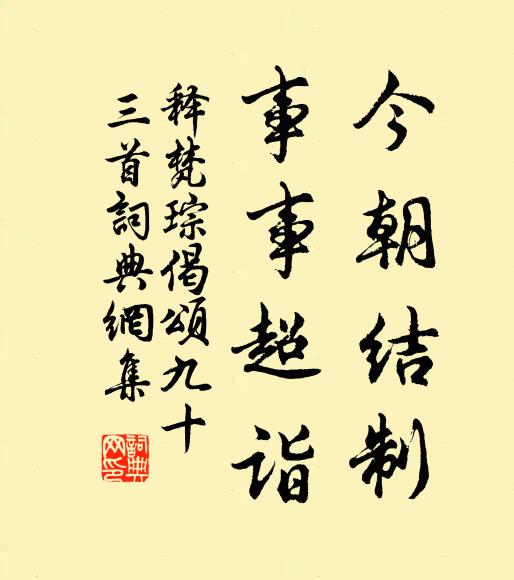 今朝结制
事事超诣
释梵琮偈颂九十
三首詞典網集
詞典网印